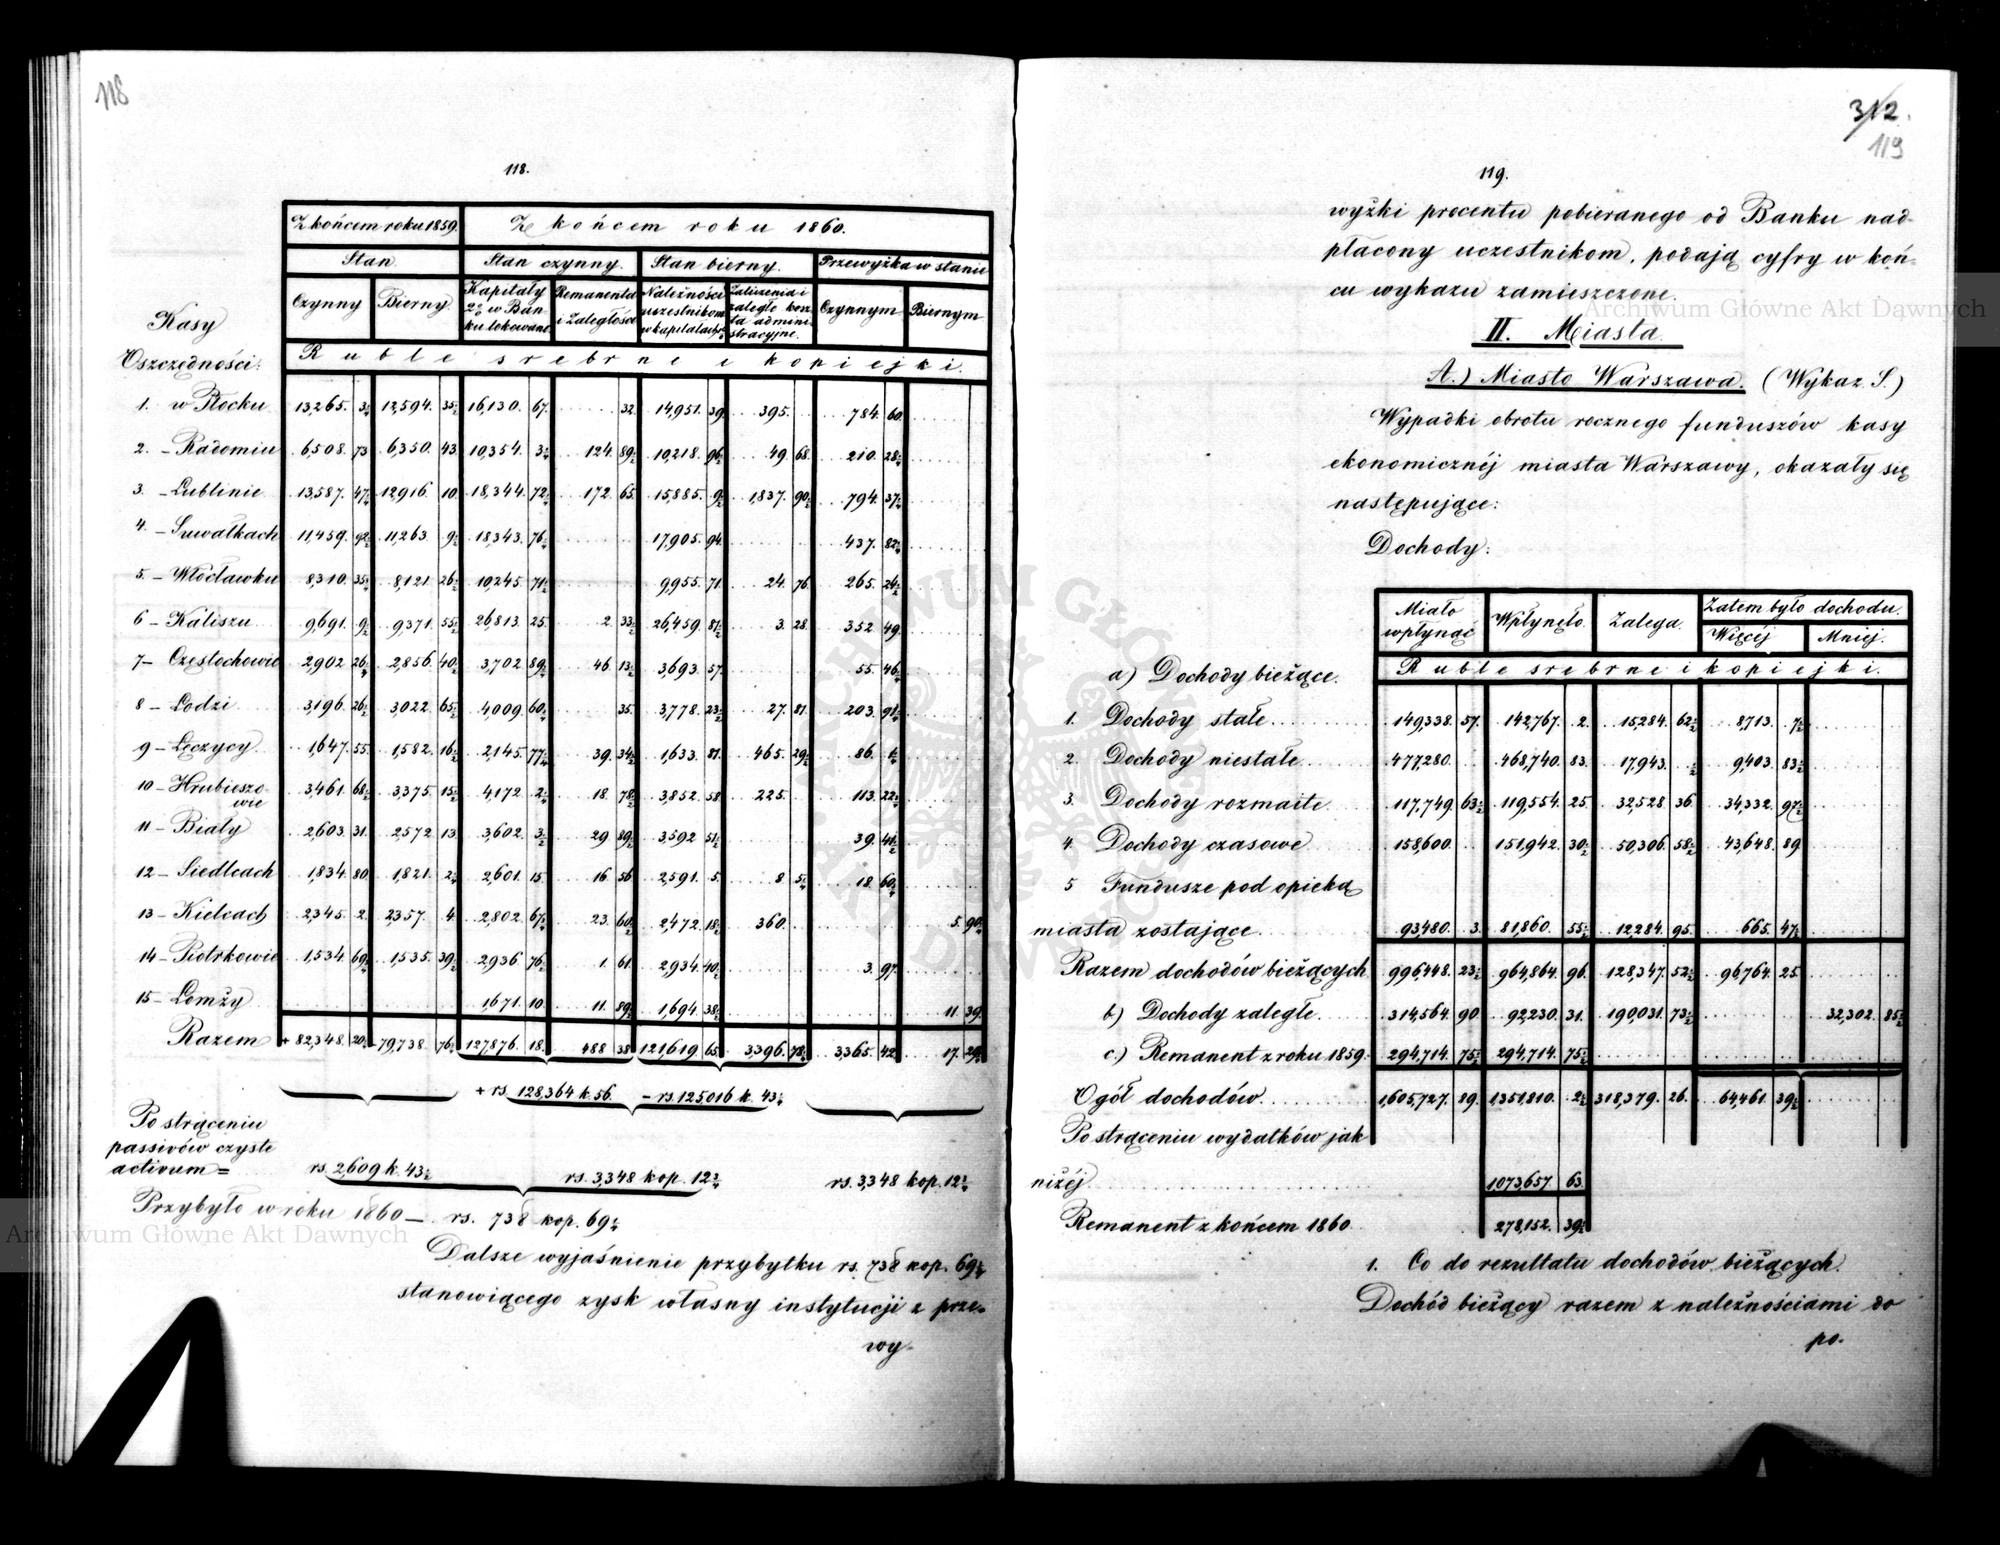 118
118.
Z końcem roku 1859. Z końcem roku 1860.
Stan. Stan czynny. Stan bierny. Przewyżka w stanie
Czynny Bierny Kapitały 2% w Banku lokowane Remanenta i Zaległości Należności uczestników w kapitałach Zaliczenia i zaległe koszta administracyjne. Czynnym Biernym
Kasy
Oszczędności: Ruble srebrne i kopiejki.
1. w Płocku 13,265. 12,594. 35½ 16,130. 67. 32. 14,951. 39 395. 784. 60.
2. – Radomiu 6,508. 73 6,350. 43 10,354. 124. 89½ 10,218. 96½ 49. 68. 210. 28
3. – Lublinie 13,587. 47 12,916. 10. 18,344. 72 172. 65. 15,885. 1,837. 90 794. 37
4. – Suwałkach 11,459. 92½ 11,263. 18,343. 76 17,905. 94. 437. 82
5. – Włocławku 8,310. 35 8,121. 26 10,245. 71 9,955. 71. 24. 76 265. 24
6 – Kaliszu 9,691. 9,371. 55½ 26,813. 25. 2. 33½ 26,459. 81½ 3. 28. 352. 49.
7 – Częstochowie 2,902. 26 2,856. 40 3,702. 89 46. 13½ 3,693. 57. 55. 46
8 – Łodzi 3,196. 26½ 3,022. 65½ 4,009. 60 35. 3,778. 23½ 27. 81. 203. 91
9 – Łęczycy 1,647. 55. 1,582. 16 2,145. 77 39. 34½ 1,633. 81. 465. 29 86.
10 – Hrubieszo-
wie 3,461. 68½ 3,375. 15½ 4,172. 18. 78½ 3,852. 58 225. 113. 22
11 – Biały 2,603. 31. 2,572. 13. 3,602. 29. 89½ 3,592. 51½ 39. 41
12 – Siedlcach 1,834. 80 1,821. 2,601. 15. 16. 56 2,591. 5. 8. 18. 60
13 – Kielcach 2,345. 2. 2,357. 4 2,802. 67½ 23. 60½ 2,472. 18½ 360. 5. 90
14 – Piotrkowie 1,534. 69 1,535. 39½ 2,936. 76 1. 61. 2,934. 40 3. 97
15 – Łomży 1,671. 10. 11. 89½ 1,694. 38½ 11. 39.
Razem + 82,348. 20 – 79,738. 76 127,876. 18. 488. 38 121,619. 65 3,396. 78 3,365. 42 17. 29
+ rs. 128,364 k. 56. – rs. 125,016 k. 43¼
Po strąceniu
passivów czyste
activum = rs. 2,609 k. 43½ rs. 3,348 kop. 12¾ rs. 3,348 kop. 12¾
Przybyło w roku 1860 – rs. 738 kop. 69¼
Dalsze wyjaśnienie przybytku rs. 738 kop. 69¼
stanowiącego zysk własny instytucji z prze-
wy-
312.
119
119.
wyżki procentu pobieranego od Banku nad-
płacony uczestnikom, podają cyfry w koń-
cu wykazu zamieszczone.
II. Miasta.
A.) Miasto Warszawa. (Wykaz S.)
Wypadki obrotu rocznego funduszów kasy
ekonomicznéj miasta Warszawy, okazały się
następujące:
Dochody:
Miało wpłynąć Wpłynęło. Zalega. Zatem było dochodu.
Więcéj Mniej.
Ruble srebrne i kopiejki.
a) Dochody bieżące.
1. Dochody stałe 149,338. 57. 142,767. 2. 15,284. 62½ 8,713. 7½
2. Dochody niestałe 477,280. 468,740. 83. 17,943. ½ 9,403. 83½
3. Dochody rozmaite 117,749. 63½ 119,554. 25. 32,528 36. 34,332. 97½
4. Dochody czasowe 158,600. 151,942. 30½ 50,306. 58½ 43,648. 89
5 Fundusze pod opieką
miasta zostające 93,480. 3. 81,860. 55½ 12,284. 95. 665. 47½
Razem dochodów bieżących 996,448. 23½ 964,864. 96. 128,347. 52½ 96,764. 25.
b) Dochody zaległe 314,564. 90 92,230. 31. 190,031. 73½ 32,302. 85½
c.) Remanent z roku 1859. 294,714. 75½ 294,714. 75½
Ogół dochodów 1,605,727. 89. 1,351,810. 2½ 318,379. 26. 64,461. 39½
Po strąceniu wydatków jak
niżéj 1,073,657. 63.
Remanent z końcem 1860. 278,152. 39½
1. Co do rezultatu dochodów bieżących.
Dochód bieżący razem z należnościami do
po.
Archiwum Główne Akt Dawnych
Archiwum Główne Akt Dawnych
ARCHIWUM GŁÓWNE AKT DAWNYCH